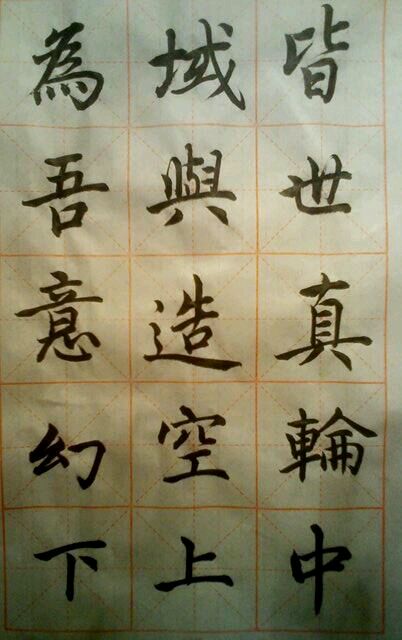 皆世真輪中
域與造空上
為吾意幻下